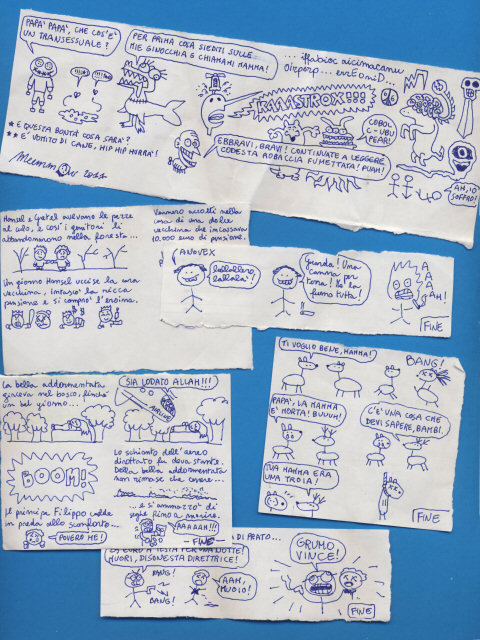 PAPA' PAPA', CHE COS'E'
UN TRANSESSUALE?
PER PRIMA COSA SIEDITI SULLE
MIE GINOCCHIA E CHIAMAMI MAMMA!
KAAASTROX!!!
COBOL
C-UBU
PEAR!
* E QUESTA BONTÀ COSA SARA'?
** E' VOMITO DI CANE, HIP HIP HURRÀ!
EBBRAVI, BRAVI! CONTINUATE A LEGGERE
CODESTA ROBACCIA FUMETTATA! PUAH!
AH, IO
SOFFRO!
Hansel e Gretel avevano le pezze
al culo, e così i genitori li
abbandonarono nella foresta...
Vennero accolti nella
casa di una dolce
vecchina che incassava
10.000 euro di pensione.
Un giorno Hansel uccise la cara
vecchina, intascò la ricca
pensione e si comprò l'eroina.
ANOVEX
lallallero,
lallalà!
Guarda! Una
canna per
terra! Me la
fumo tutta!
A
A
A
AH!
FINE
TI VOGLIO BENE, MAMMA!
BANG!
PAPÀ, LA MAMMA
E' MORTA! BUUUH!
C'E' UNA COSA CHE
DEVI SAPERE, BAMBI.
TUA MAMMA ERA
UNA TROIA!
FINE
La bella addormentata
giaceva nel bosco, finché
un bel giorno...
SIA LODATO ALLAH!!!
AIRLINE
BOOM!
Lo schianto dell'aereo
dirottato fu devastante.
Della bella addormentata
non rimase che cenere...
Il principe Filippo cadde
in preda allo sconforto...
POVERO ME!
...e si ammazzò di
seghe fino a morire.
AAAAAH!!!
- FINE -
DI PRATO...
EURO A TESTA PER UNA NOTTE!
MUORI, DISONESTA DIRETTRICE!
BANG!
BANG!
AAH,
MUOIO!
GRUMO
VINCE!
FINE